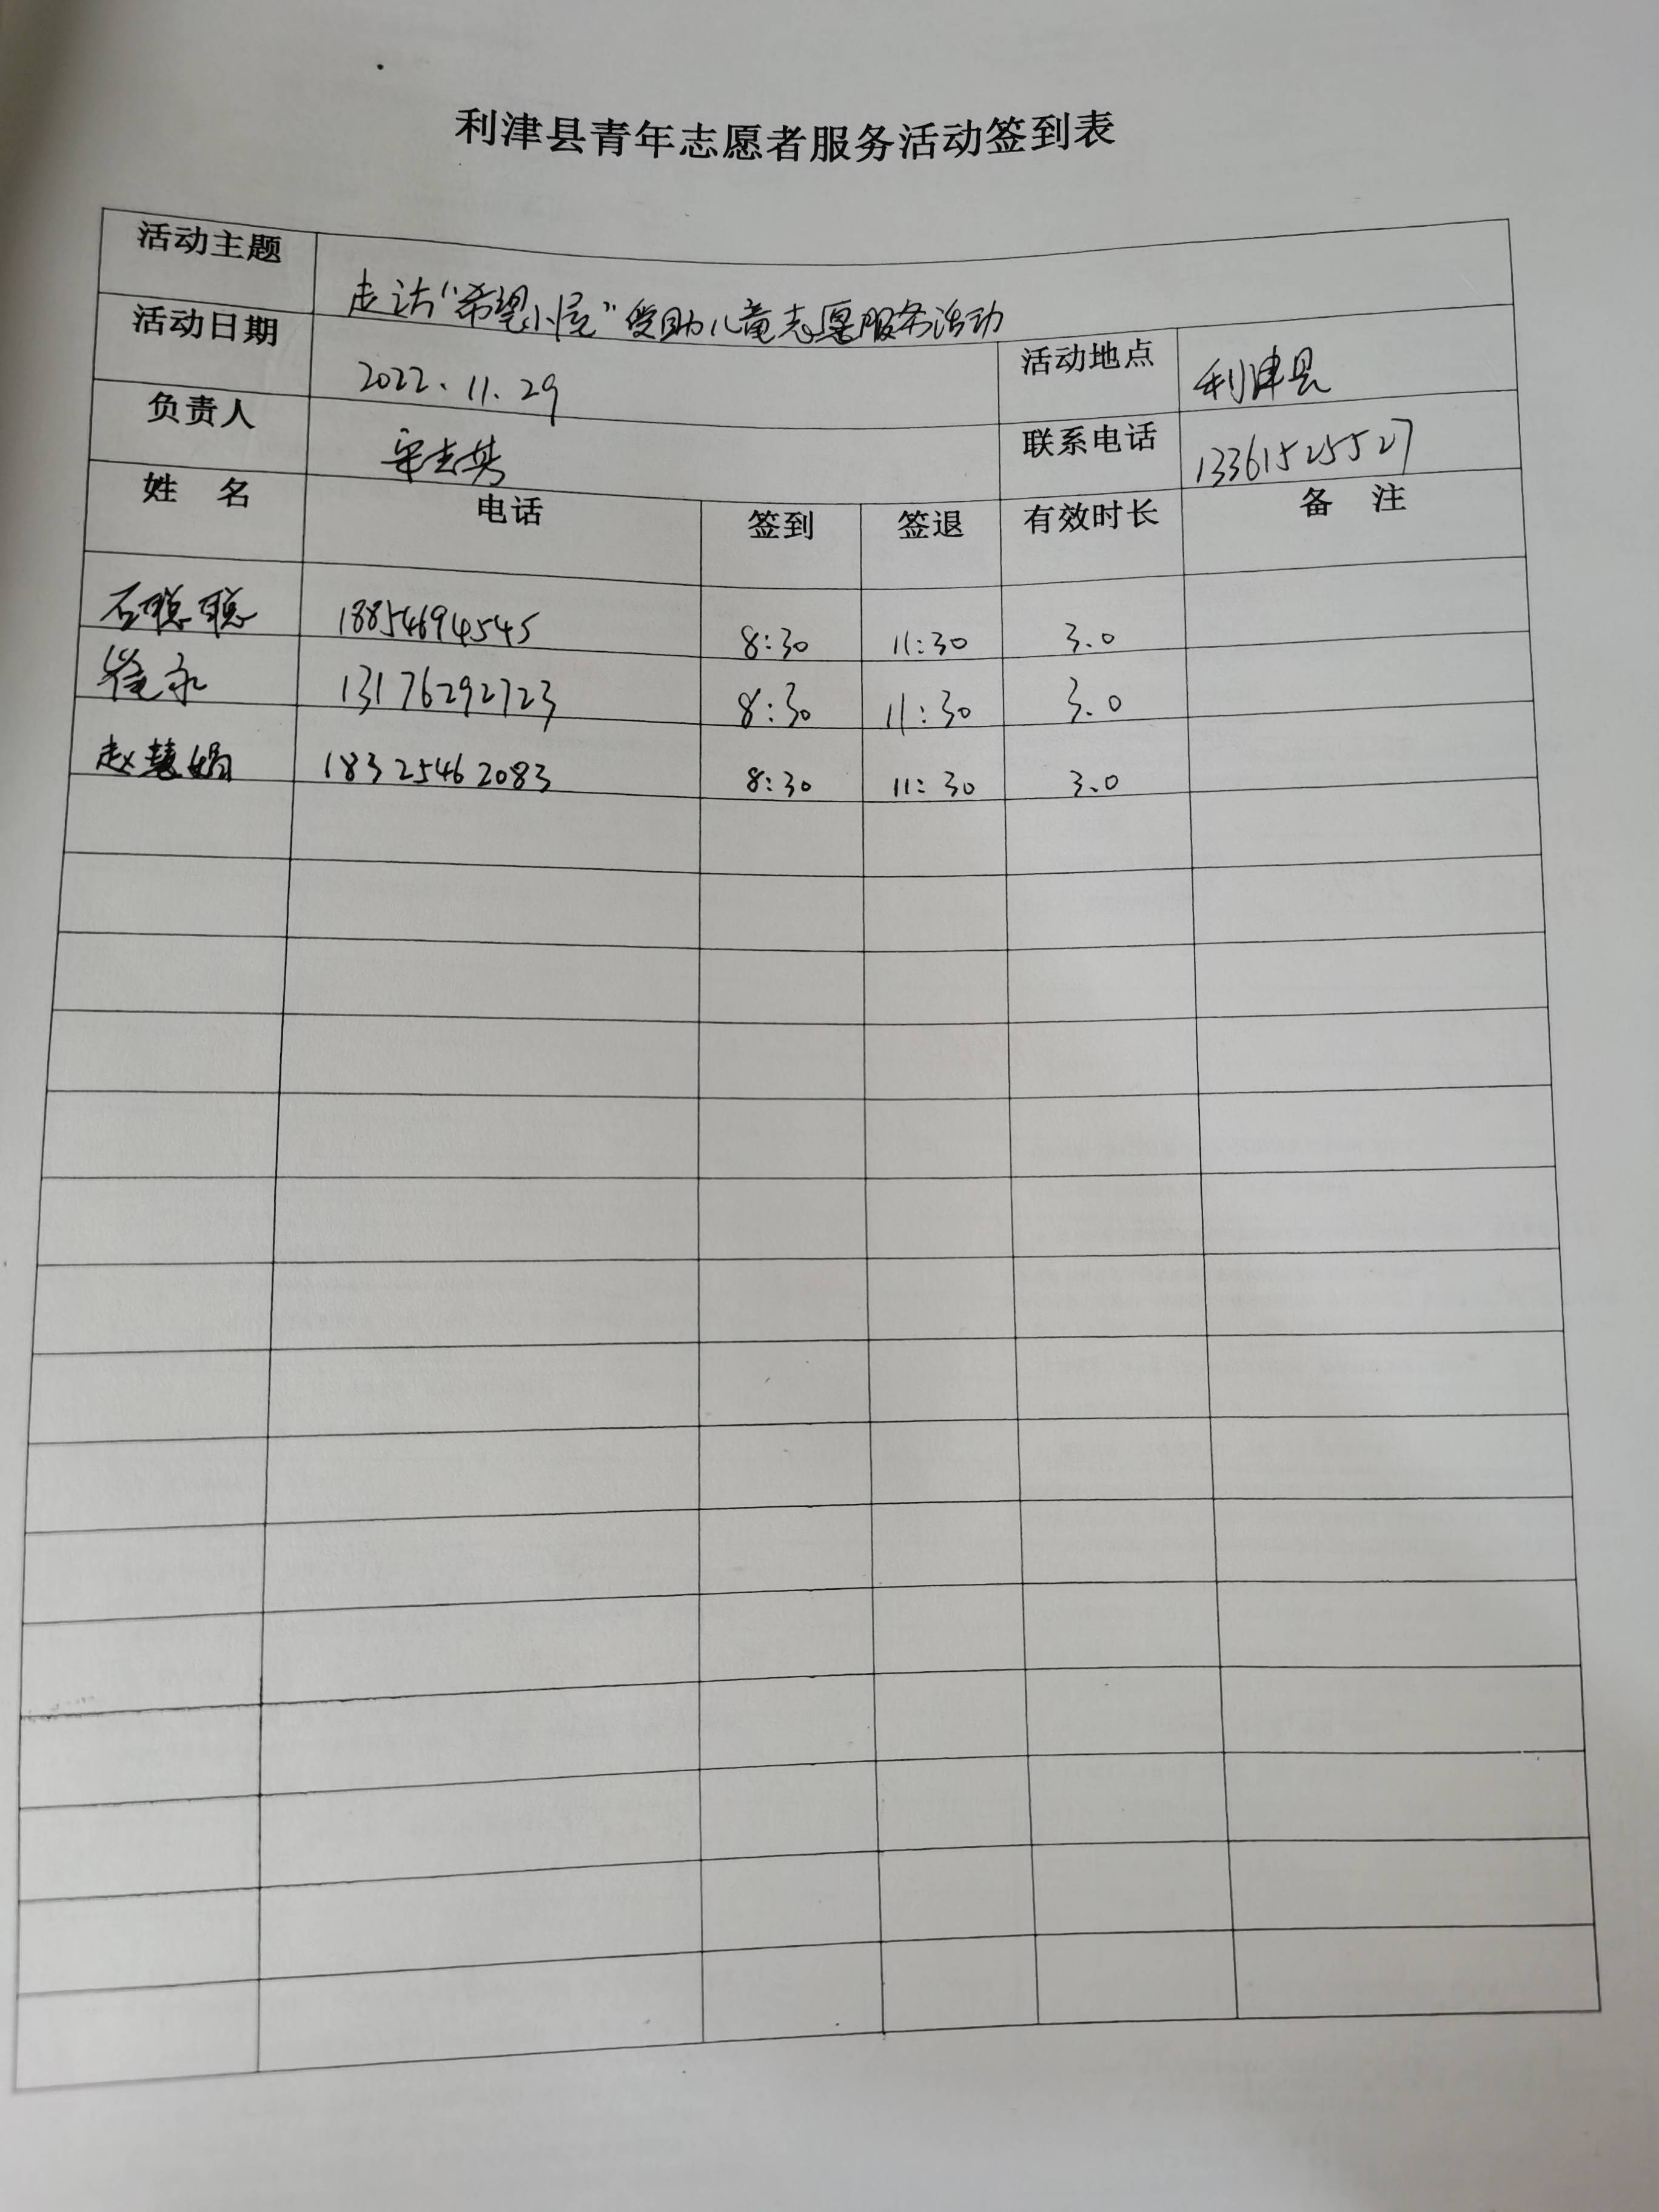 利津县青年志愿者服务活动签到表
活动主题 走访“希望小屋”受助儿童志愿服务活动
活动日期 2022.11.29 活动地点 利津县
负责人 联系电话 13361525527
姓 名 电话 签到 签退 有效时长 备 注
石聪聪 18854694545 8:30 11:30 3.0
崔永 13176292723 8:30 11:30 3.0
赵慧娟 18325462083 8:30 11:30 3.0